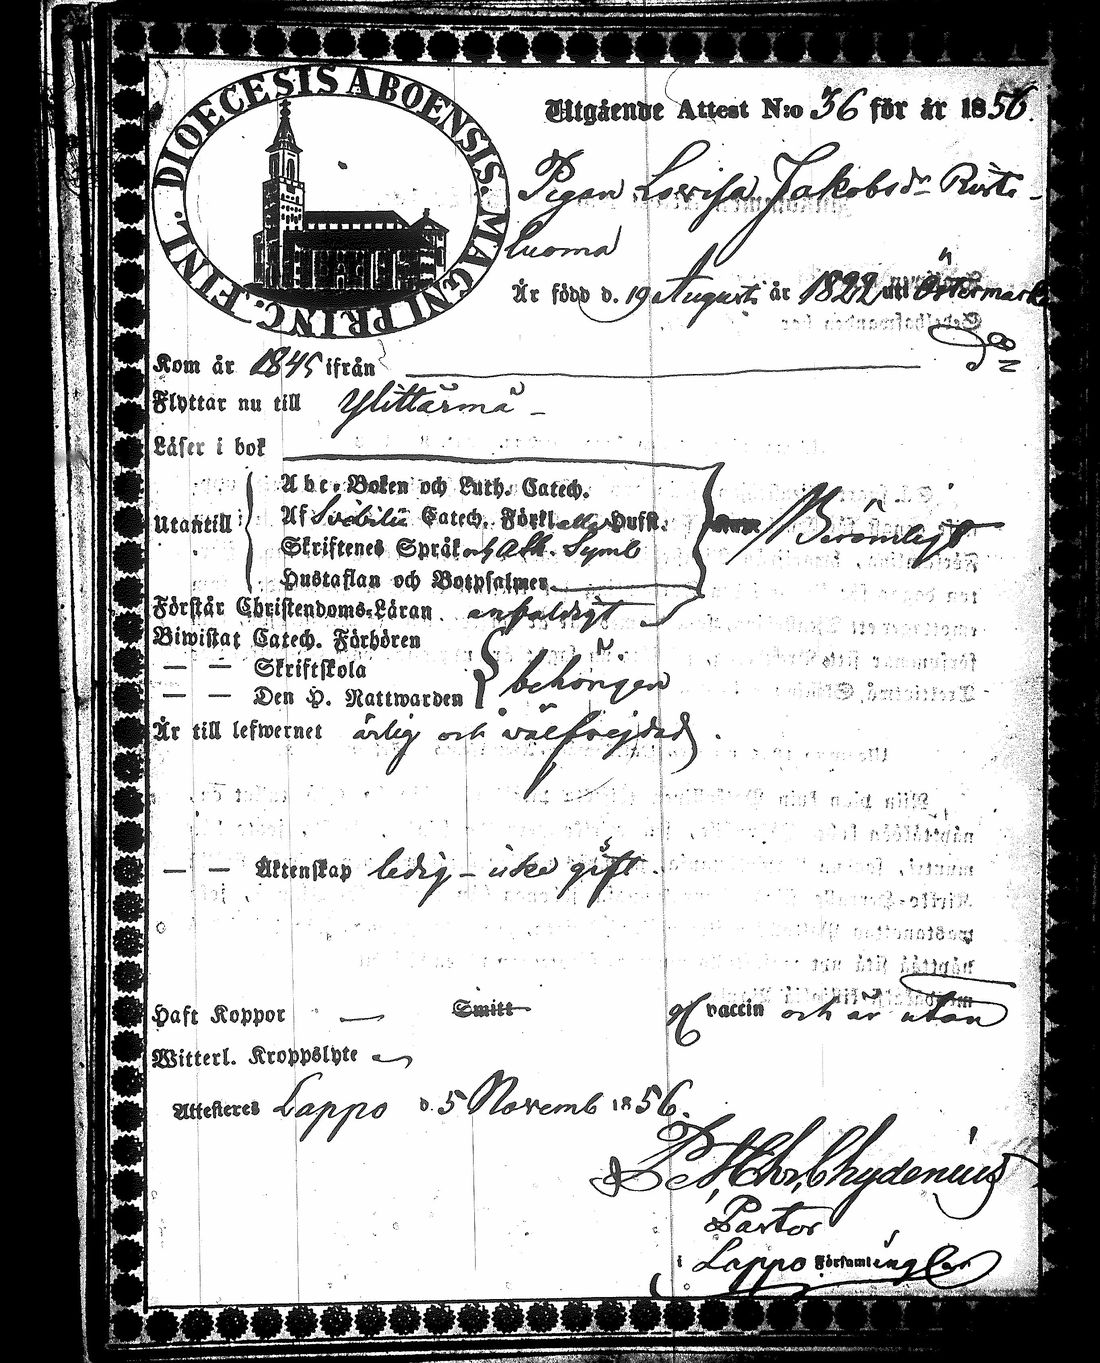 DIOECESIS ABOENSIS. MAGNI PRINC. FINL.
Utgående Attest N:o 36 för år 1856.
Pigan Lovisa Jakobsdr Rinta-
luoma
Är född d. 19 Augusti år 1822 uti Östermark
Kom år 1845 ifrån
Flyttar nu till Ylittärmä -
Läser i bok
Utantill
Abc-Boken och Luth. Catech.
Af Svebilii Catech. Förkl. Hufst.
Skriftenes Språk och Ath. Symb
Hustaflan och Botpsalmer
Berömligt
Förstår Christendoms-Läran enfaldigt
Biwistat Catech. Förhören
— — Skriftskola
— — Den H. Nattwarden
behörigen
Är till lefwernet ärlig och välfrejdad.
— — Äktenskap ledig - icke gift.
Haft Koppor — Smitt vaccin och är utan
Witterl. Kroppslyte
Attesteras Lappo d. 5 Novemb 1856.
Chydenius
Pastor
i Lappo Församlingar